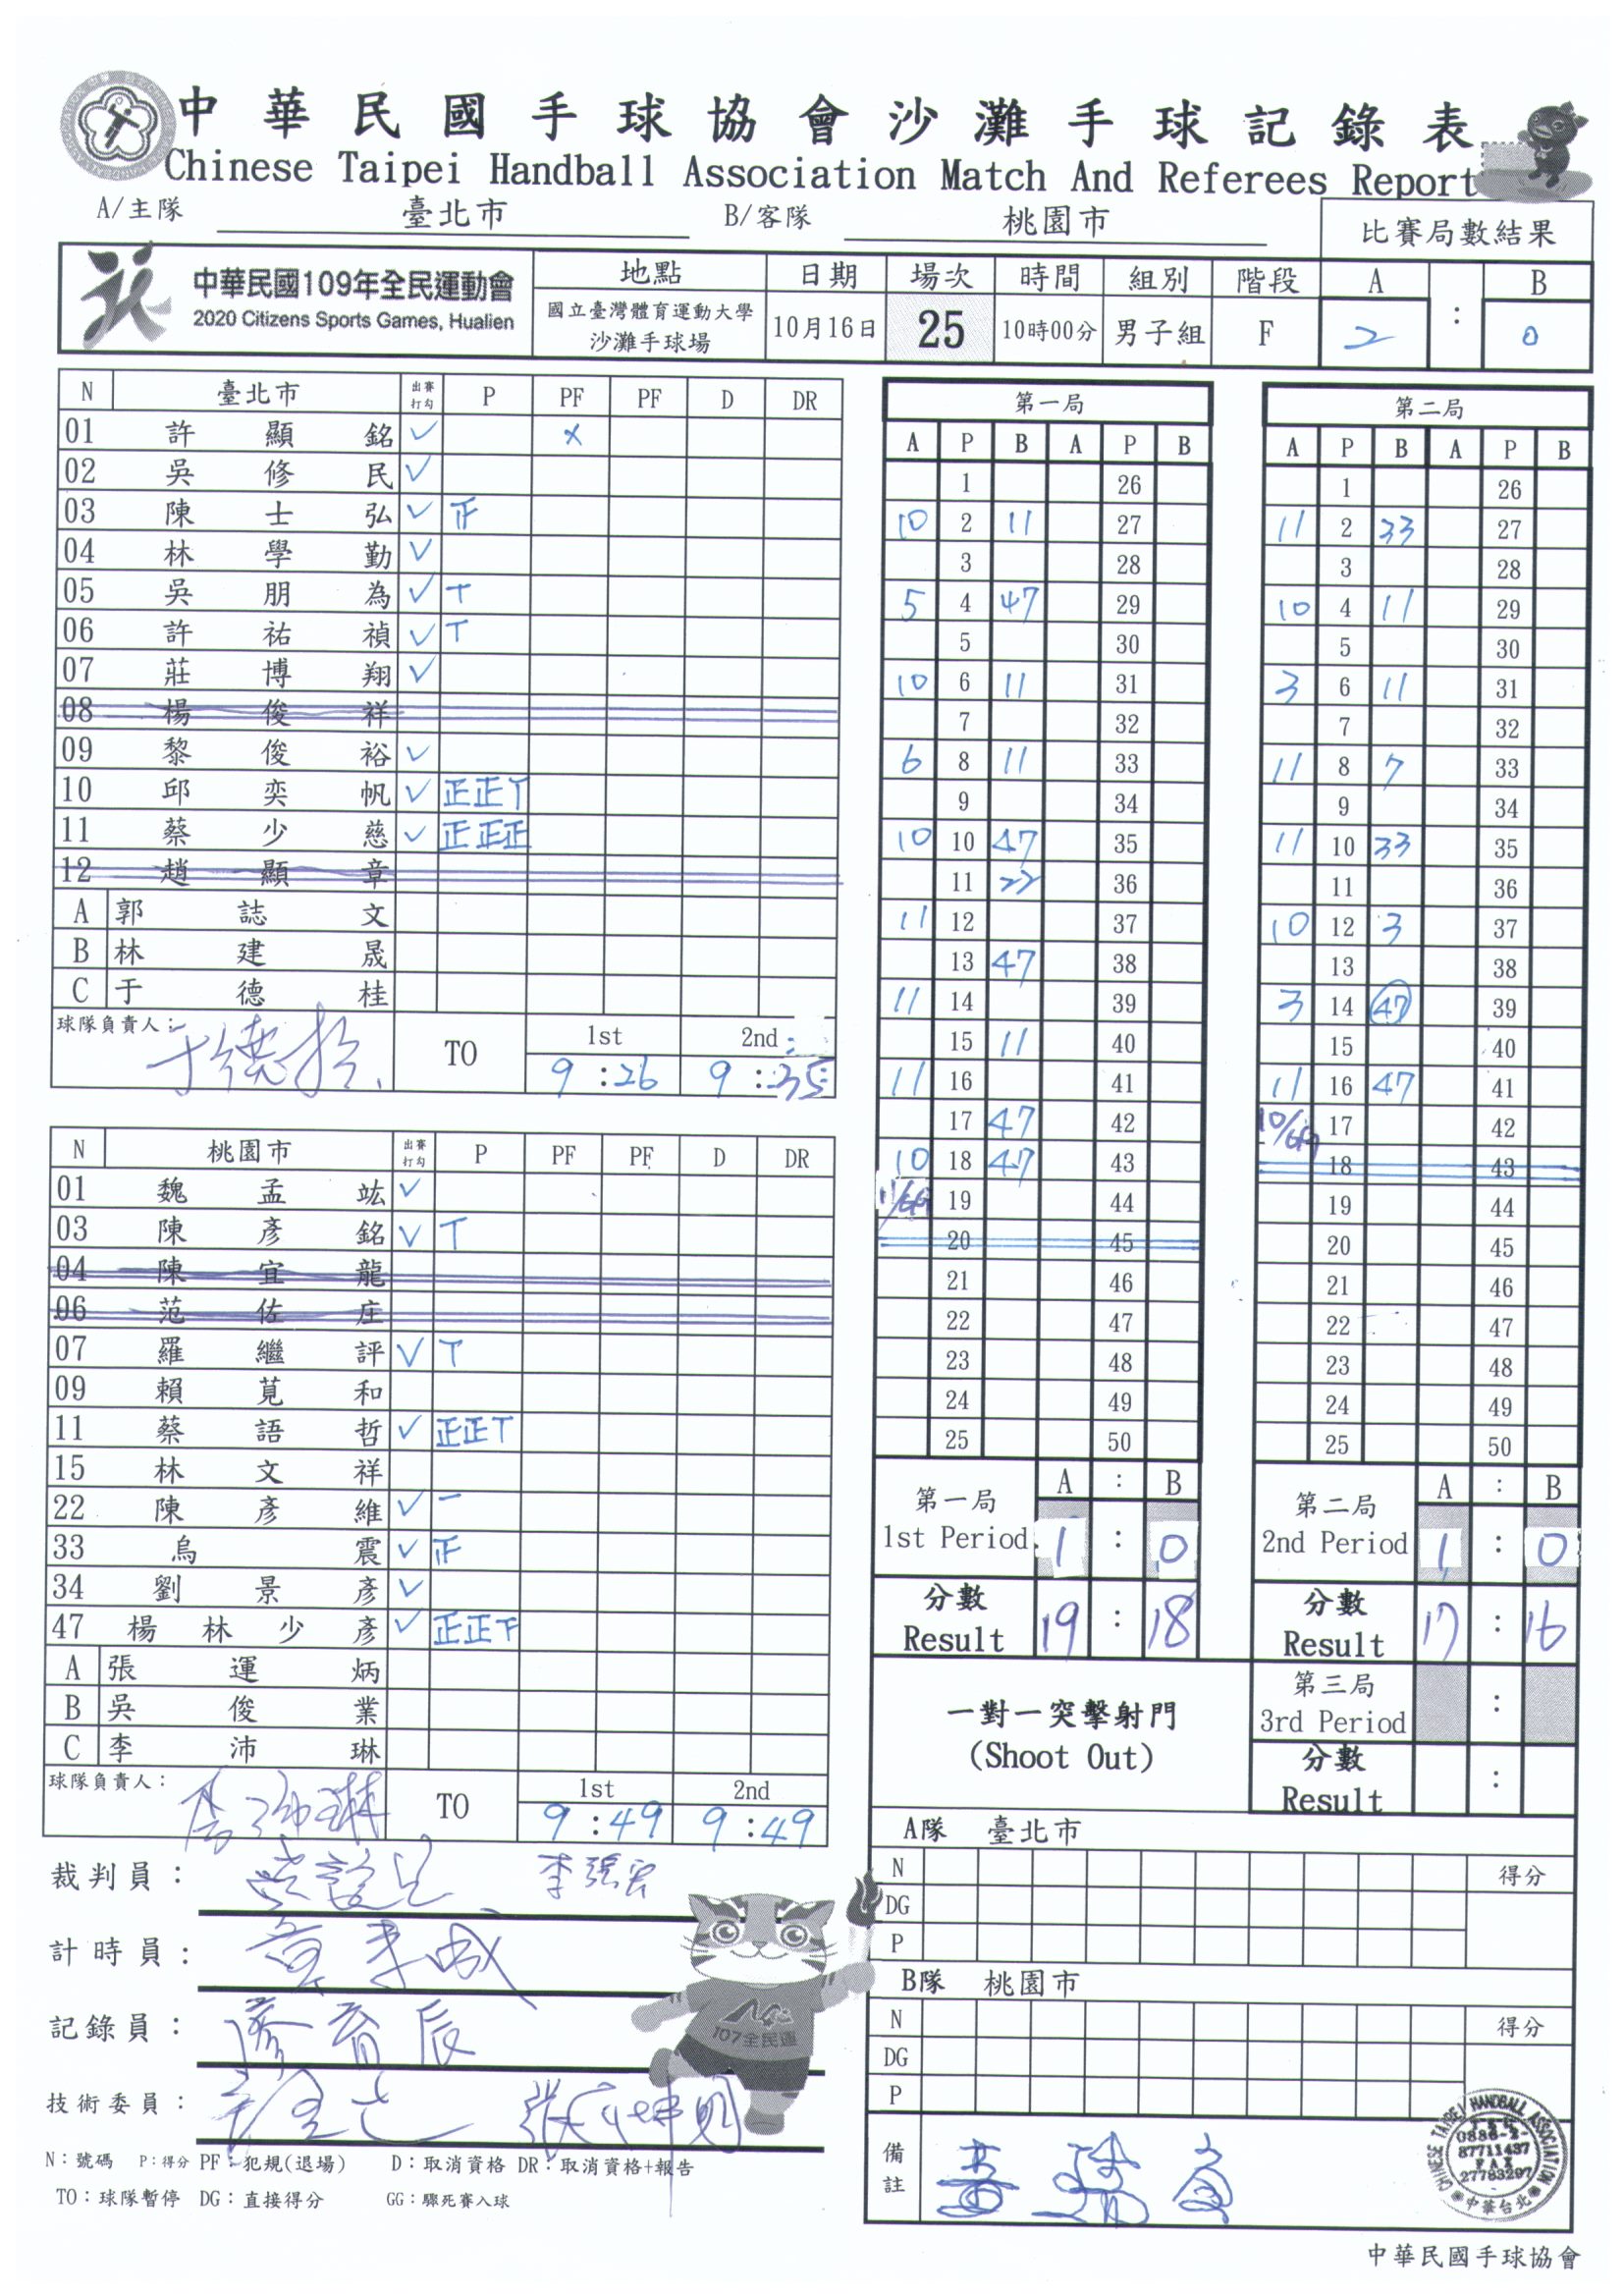 中華民國手球協會沙灘手球記錄表
Chinese Taipei Handball Association Match And Referees Report
A/主隊 臺北市 B/客隊 桃園市 比賽局數結果
中華民國109年全民運動會
2020 Citizens Sports Games, Hualien
地點 日期 場次 時間 組別 階段 A : B
國立臺灣體育運動大學
沙灘手球場 10月16日 25 10時00分 男子組 F 2 0
N 臺北市 出賽打勾 P PF PF D DR
01 許顯銘 ✓ x
02 吳修民 ✓
03 陳士弘 ✓
04 林學勤 ✓
05 吳朋為 ✓ T
06 許祐禎 ✓ T
07 莊博翔 ✓
08 楊俊祥
09 黎俊裕 ✓
10 邱奕帆 ✓ 正正丅
11 蔡少慈 ✓ 正正正
12 趙顯章
A 郭誌文
B 林建晟
C 于德桂
球隊負責人: TO 1st 2nd
9:26 9:35
N 桃園市 出賽打勾 P PF PF D DR
01 魏孟竑 ✓
03 陳彥銘 ✓ T
04 陳宜龍
06 范佐庄
07 羅繼評 ✓ T
09 賴莧和
11 蔡語哲 ✓ 正正T
15 林文祥
22 陳彥維 ✓ 一
33 烏震 ✓
34 劉景彥 ✓
47 楊林少彥 ✓ 正正下
A 張運炳
B 吳俊業
C 李沛琳
球隊負責人: TO 1st 2nd
9:49 9:49
第一局
A P B A P B
1 26
10 2 11 27
3 28
5 4 47 29
5 30
10 6 11 31
7 32
6 8 11 33
9 34
10 10 47 35
11 22 36
11 12 37
13 47 38
11 14 39
15 11 40
11 16 41
17 47 42
10 18 47 43
11/GG 19 44
20 45
21 46
22 47
23 48
24 49
25 50
第一局 A : B
1st Period 1 : 0
分數
Result 19 : 18
第二局
A P B A P B
1 26
11 2 33 27
3 28
10 4 11 29
5 30
3 6 11 31
7 32
11 8 7 33
9 34
11 10 33 35
11 36
10 12 3 37
13 38
3 14 47 39
15 40
11 16 47 41
10/GG 17 42
18 43
19 44
20 45
21 46
22 47
23 48
24 49
25 50
第二局 A : B
2nd Period 1 : 0
分數
Result 17 : 16
一對一突擊射門
(Shoot Out)
第三局
3rd Period :
分數
Result :
A隊 臺北市
N 得分
DG
P
B隊 桃園市
N 得分
DG
P
備註
裁判員: 李張宏
計時員:
記錄員:
技術委員:
107全民運
N:號碼 P:得分 PF:犯規(退場) D:取消資格 DR:取消資格+報告
TO:球隊暫停 DG:直接得分 GG:驟死賽入球
CHINESE TAIPEI HANDBALL ASSOCIATION
TEL
0886-2-
87711437
FAX
27783297
中華台北
中華民國手球協會